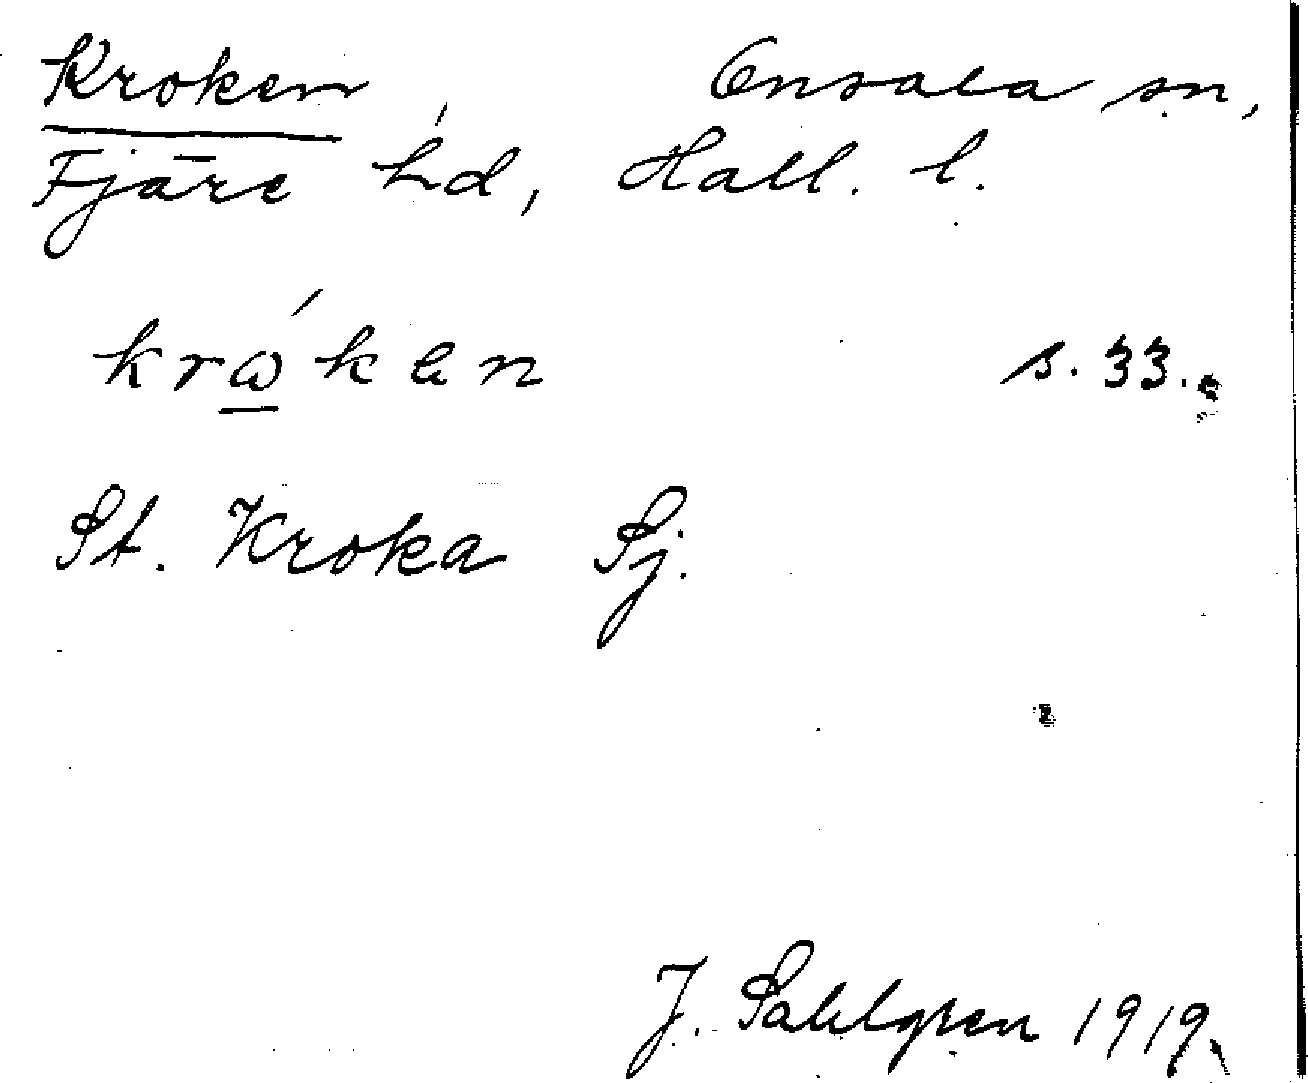 Kroken, Onsala sn,
Fjäre hd, Hall. l.
krώ̲ken s. 33.
St. Kroka Sj.
J. Sahlgren 1919